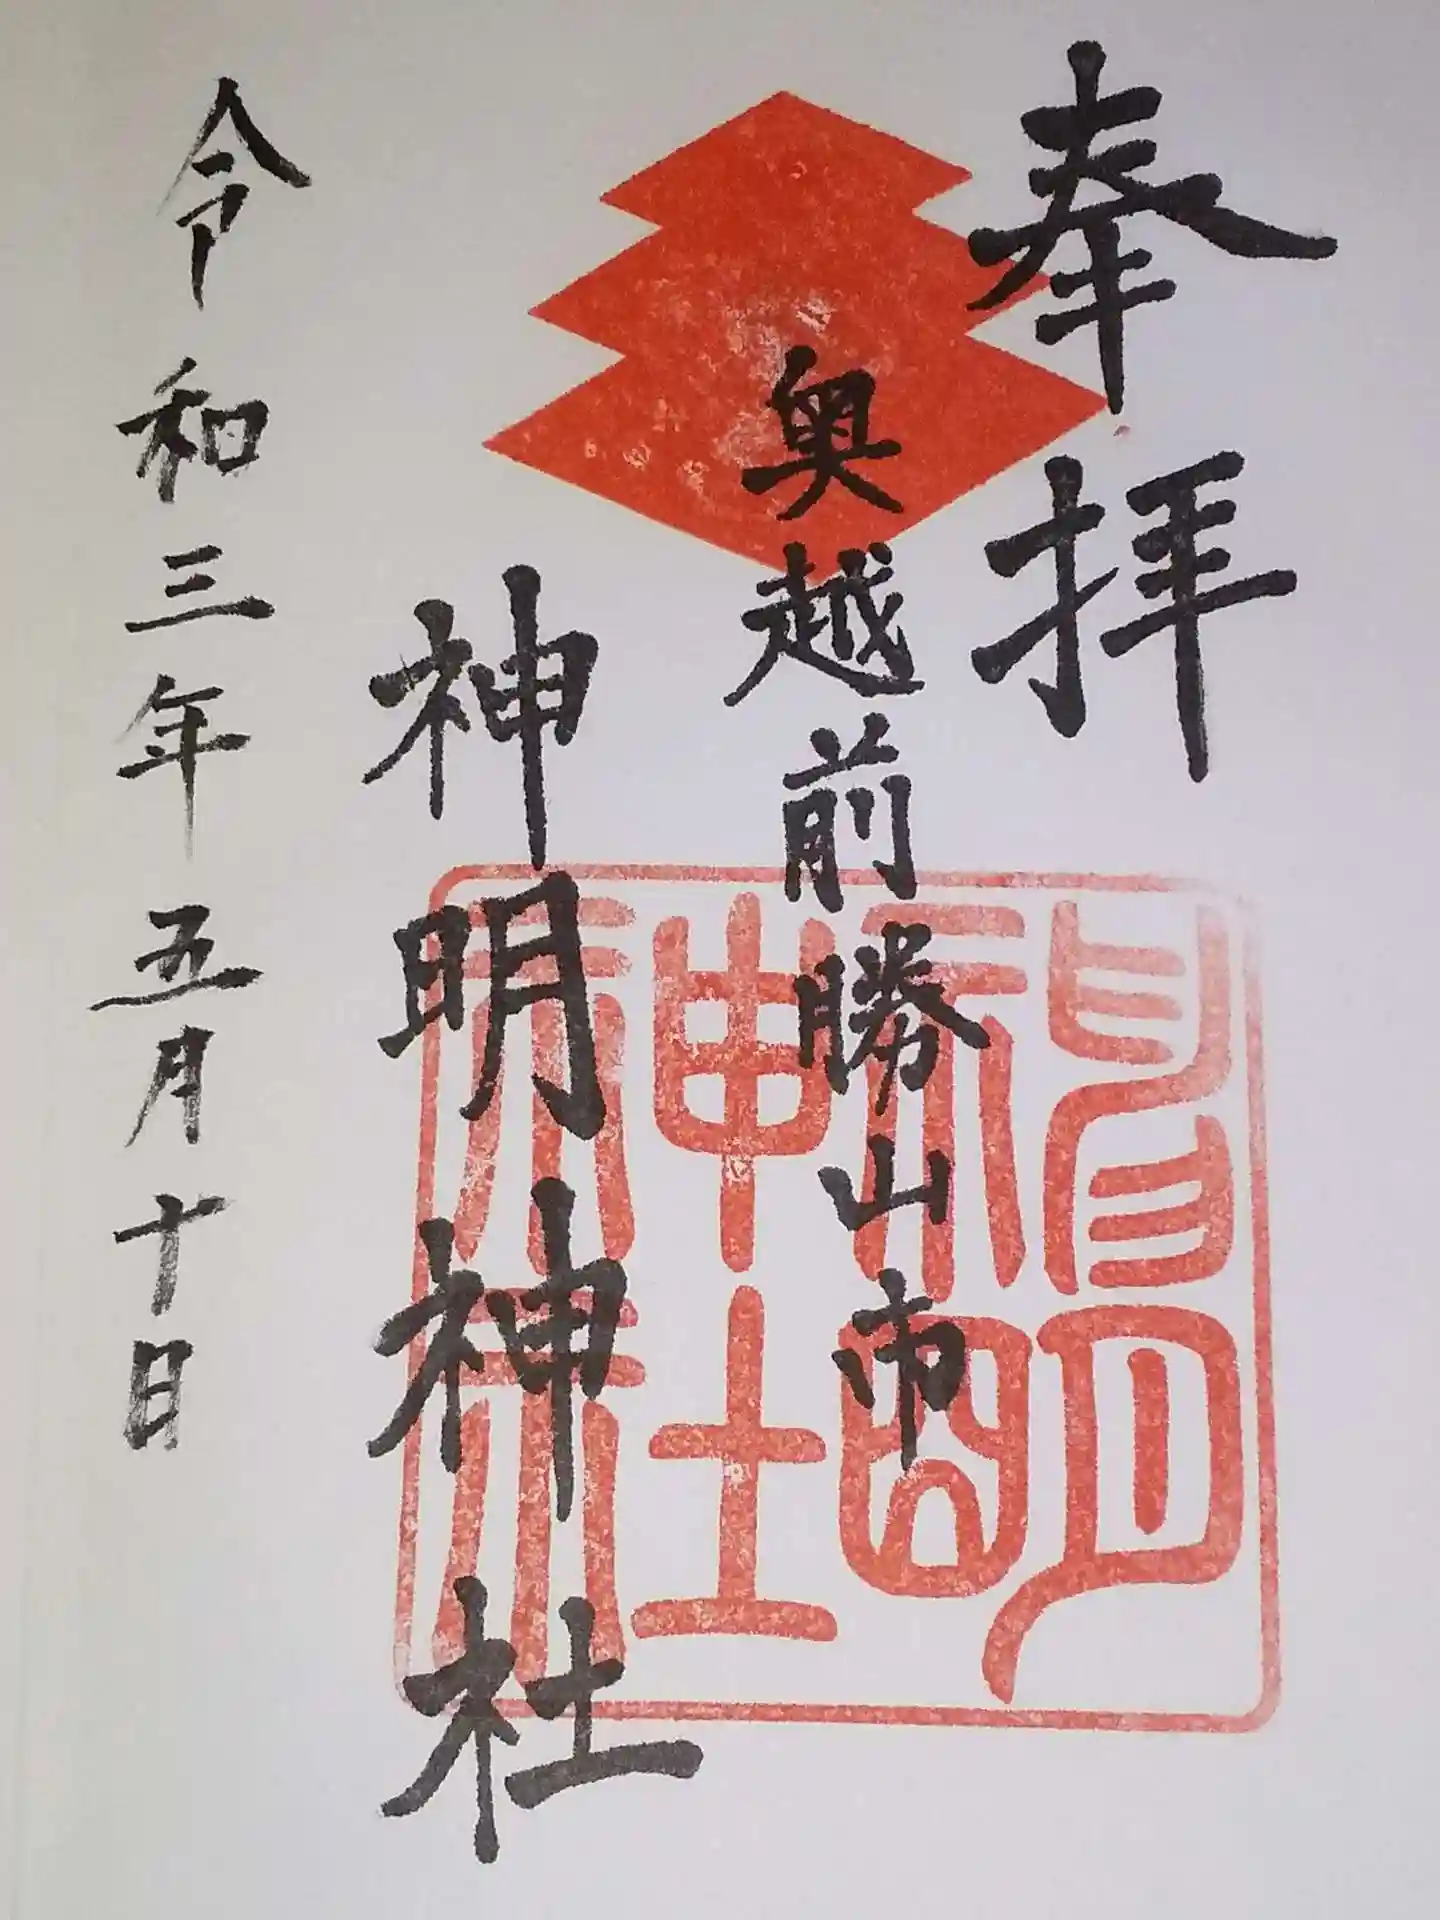 奉拝
奥越前勝山市
神明神社
令和三年五月十日
神社